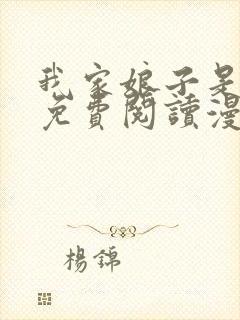 我家娘子是
免費閱讀漫
楊錦